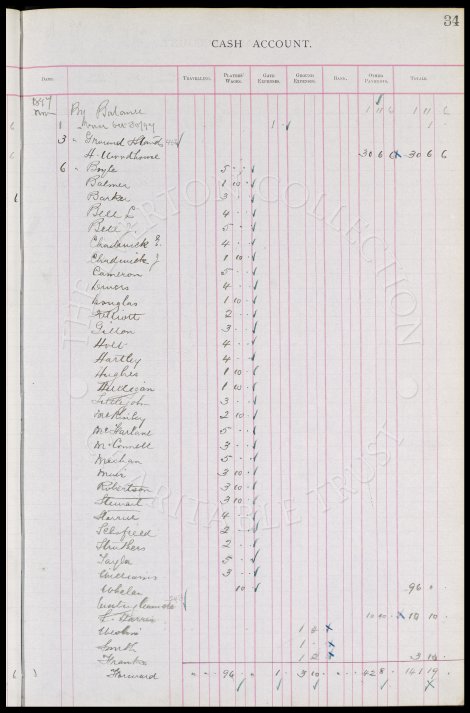 34
CASH ACCOUNT.
DATE. TRAVELLING. PLAYERS' WAGES. GATE EXPENSES. GROUND EXPENSES. BANK. OTHER PAYMENTS. TOTALS.
1897
Nov By Balance 1 11 6 1 11 6
1 1 1
3 " Ground
H. Woodhouse 30 6 6 30 6 6
6 " Boyle 5
Balmer 1 10
Barker 3
Bell L 4
Bell J. 5
Chadwick E. 4
Chadwick J 1 10
Cameron 5
Divers 4
Douglas 1 10
Elliott 2
Gillon 3
Holt 4
Hartley 4
Hughes 1 10
Mulligan 1 10
Littlejohn 3
2 10
McFarlane 5
McConnell 3
Meehan 5
Muir 3 10
Robertson 3 10
Stewart 3 10
Storrier 4
Schofield 2
Struthers 2
Taylor 5
Williams 3
Whelan 10 96
10 10
1
Smith 1
1
Forward 96 1 3 10 42 8 141 19
THE EVERTON COLLECTION CHARITABLE TRUST